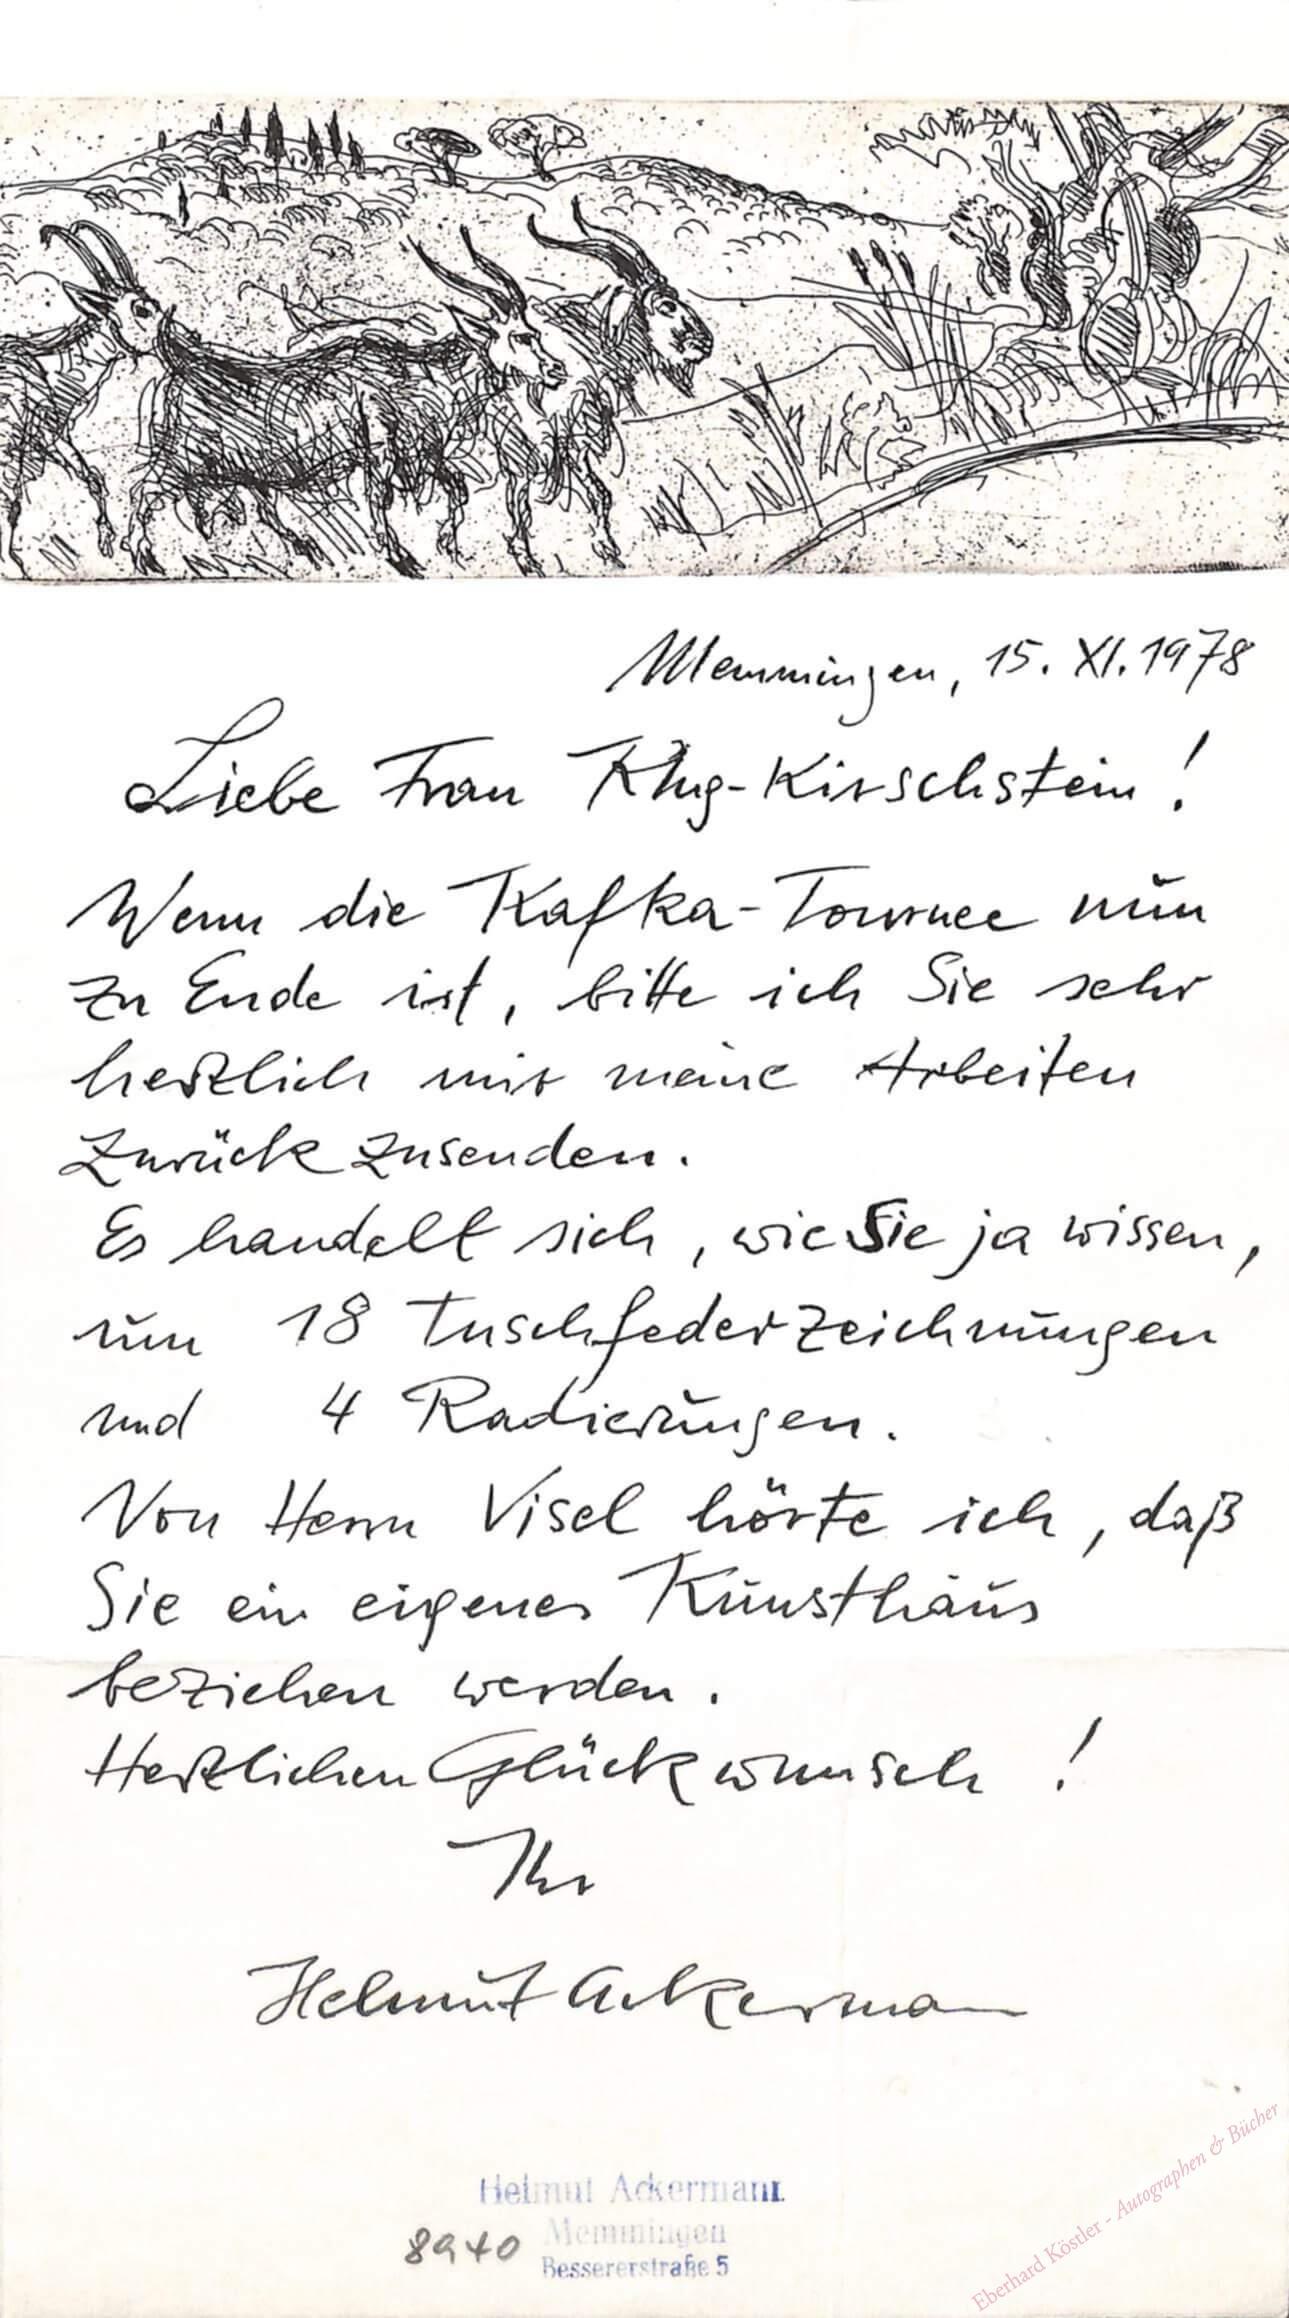 Memmingen, 15. XI. 1978
Liebe Frau Klug-Kirschstein!
Wenn die Kafka-Tournee nun
zu Ende ist, bitte ich Sie sehr
herzlich mir meine Arbeiten
zurückzusenden.
Es handelt sich, wie Sie ja wissen,
um 18 Tuschfederzeichnungen
und 4 Radierungen.
Von Herrn Visel hörte ich, daß
Sie ein eigenes Kunsthaus
beziehen werden.
Herzlichen Glückwunsch!
Ihr
Helmut Ackermann
Helmut Ackermann
8940 Memmingen
Bessererstraße 5
Eberhard Köstler - Autographen & Bücher